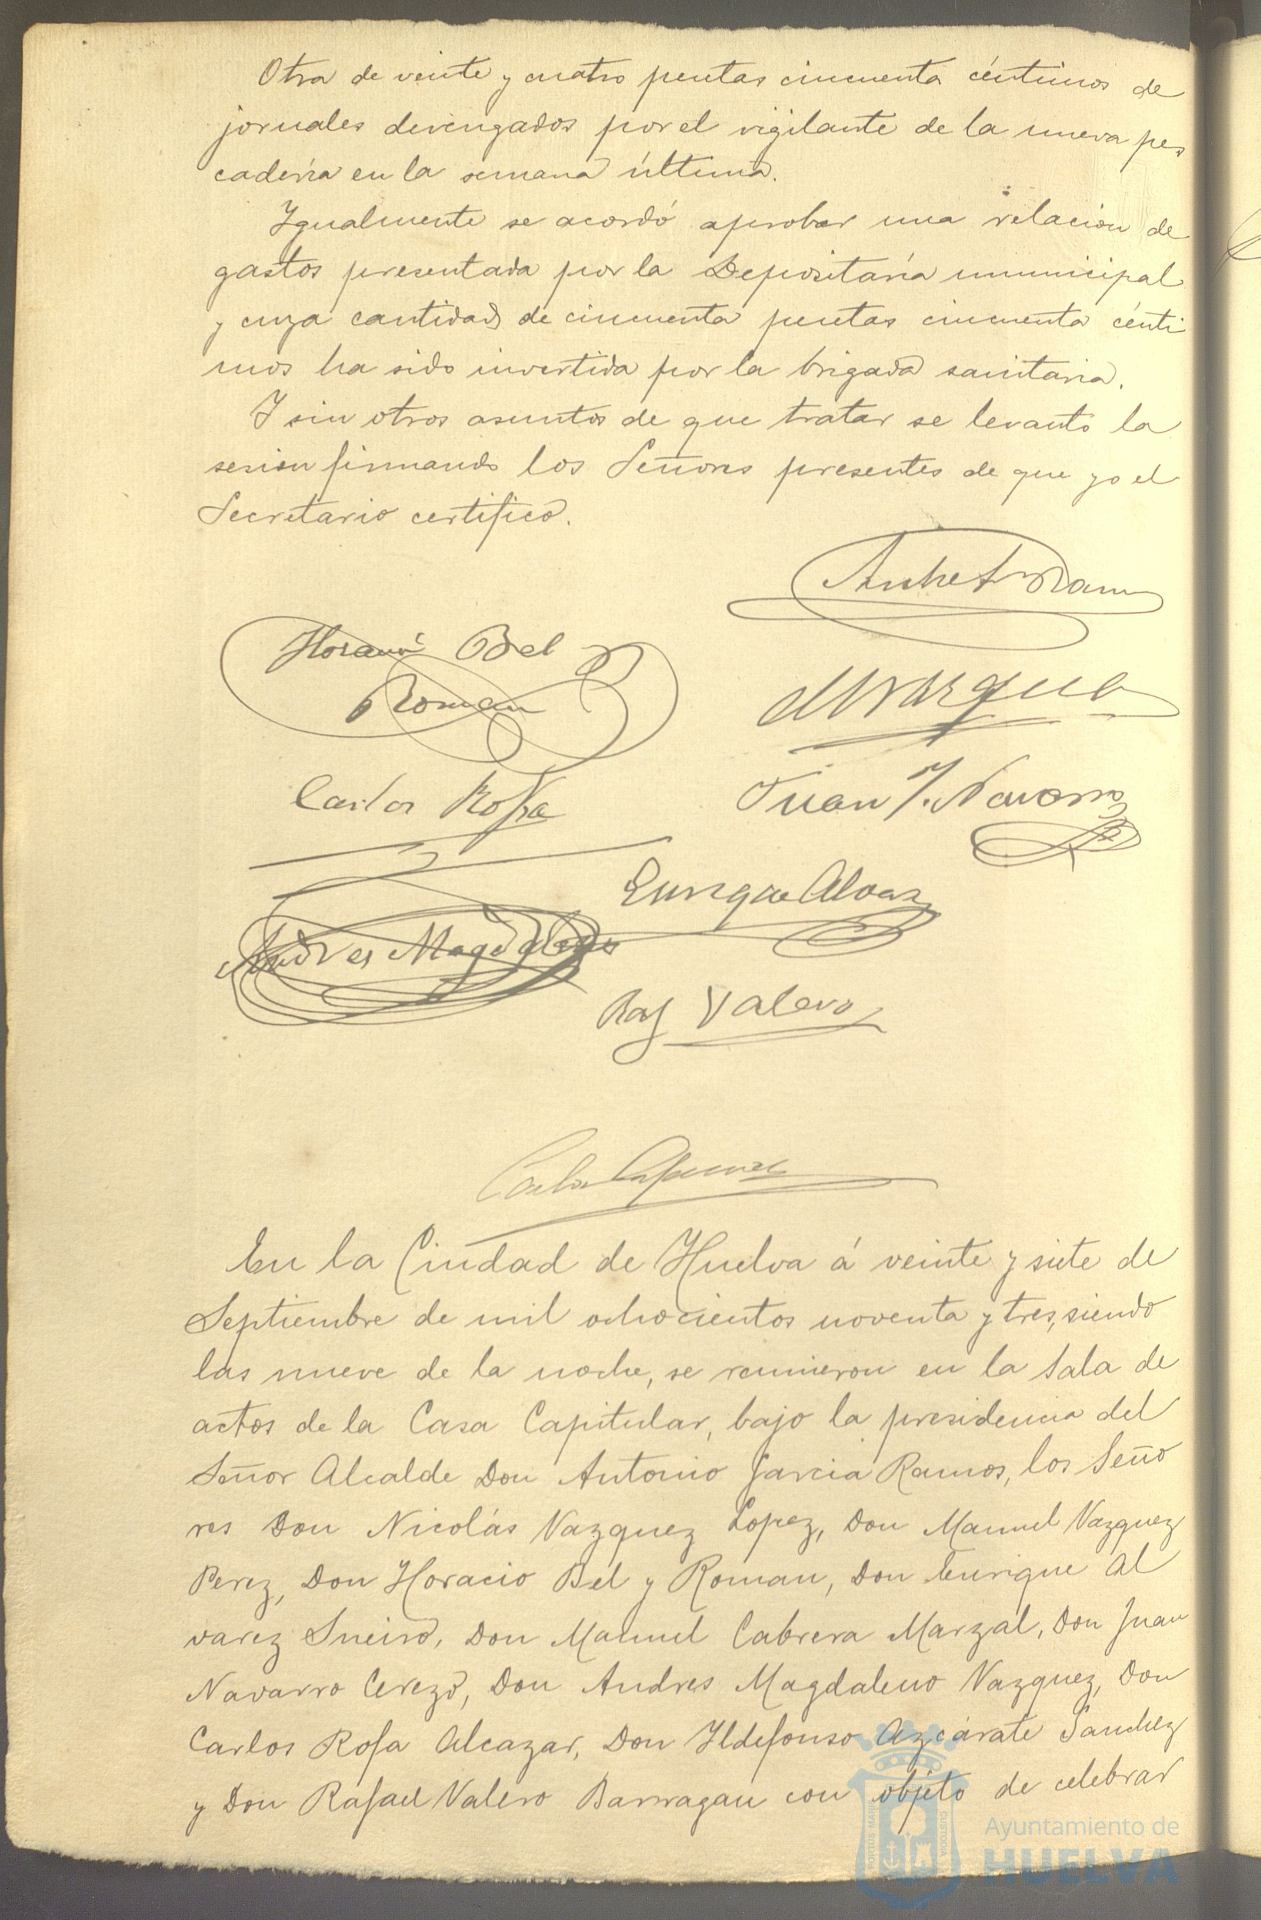 Otra de veinte y cuatro pesetas cincuenta céntimos de
jornales devengados por el vigilante de la nueva pes
cadería en la semana última.
Igualmente se acordó aprobar una relación de
gastos presentada por la Depositaría municipal
y cuya cantidad de cincuenta pesetas cincuenta cénti
mos ha sido invertida por la brigada sanitaria.
Y sin otros asuntos de que tratar se levantó la
sesion firmando los Señores presentes de que yo el
Secretario certifico.
Horacio Bel
Roman
M Vazquez
Carlos Rofa
Juan J. Navarro
Enrique Alvarez
Andres Magdaleno
Raf Valero
En la Ciudad de Huelva á veinte y siete de
Septiembre de mil ochocientos noventa y tres, siendo
las nueve de la noche, se reunieron en la Sala de
actos de la Casa Capitular, bajo la presidencia del
Señor Alcalde Don Antonio Garcia Ramos, los Seño
res Don Nicolás Vazquez Lopez, Don Manuel Vazquez
Perez, Don Horacio Bel y Roman, Don Enrique Al
varez Sneiro, Don Manuel Cabrera Marzal, Don Juan
Navarro Cerezo, Don Andres Magdaleno Vazquez, Don
Carlos Rofa Alcazar, Don Ildefonso Azcárate Sanchez
y Don Rafael Valero Barragan con objéto de celebrar
Ayuntamiento de
HUELVA